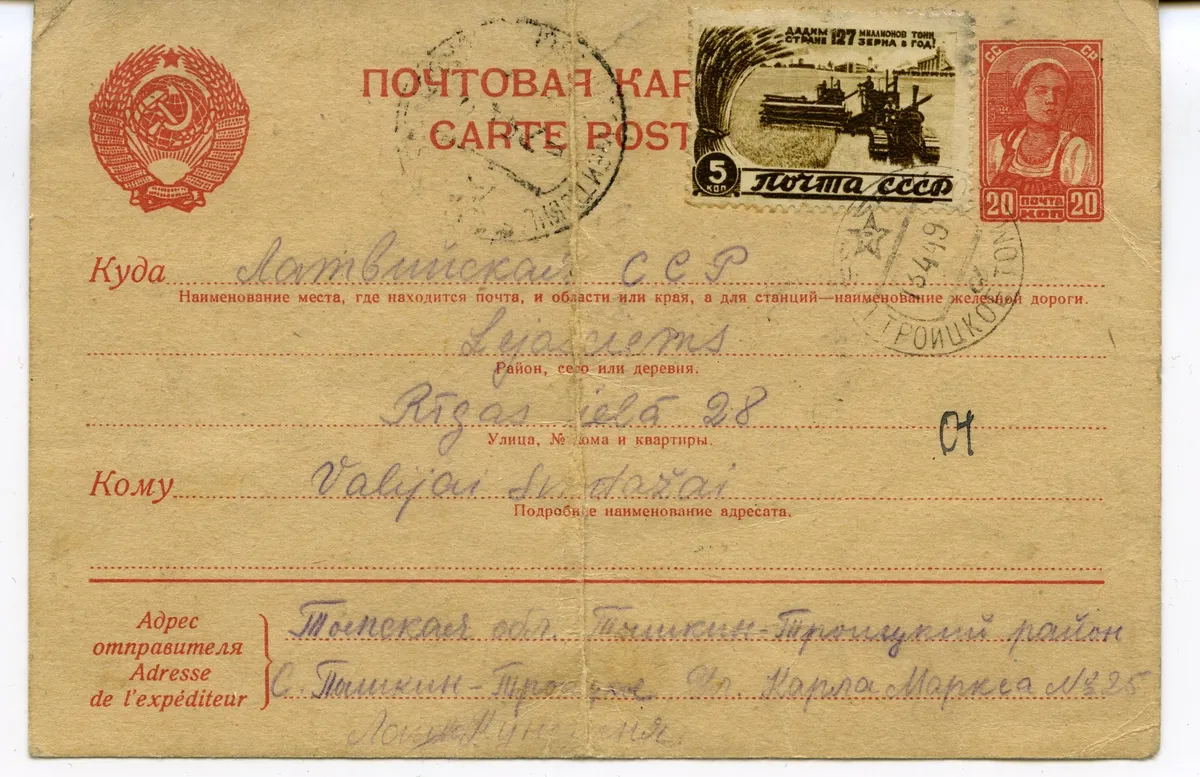 ПОЧТОВАЯ КАР
CARTE POST
ДАДИМ СТРАНЕ 127 МИЛЛИОНОВ ТОНН ЗЕРНА В ГОД!
5 КОП
ПОЧТА СССР
СС СР
20 ПОЧТА КОП 20
13 4 49
ТРОИЦКОЕ
Куда Латвийская ССР
Наименование места, где находится почта, и области или края, а для станций—наименование железной дороги.
Lejasciems
Район, село или деревня.
Rīgas ielā 28
Улица, № дома и квартиры.
01
Кому Valijai
Подробное наименование адресата.
Адрес
отправителя
Adresse
de l'expéditeur
Томская обл. Пышкин-Троицкий район
С. Пышкин-Троицкое Ул. Карла Маркса № 25